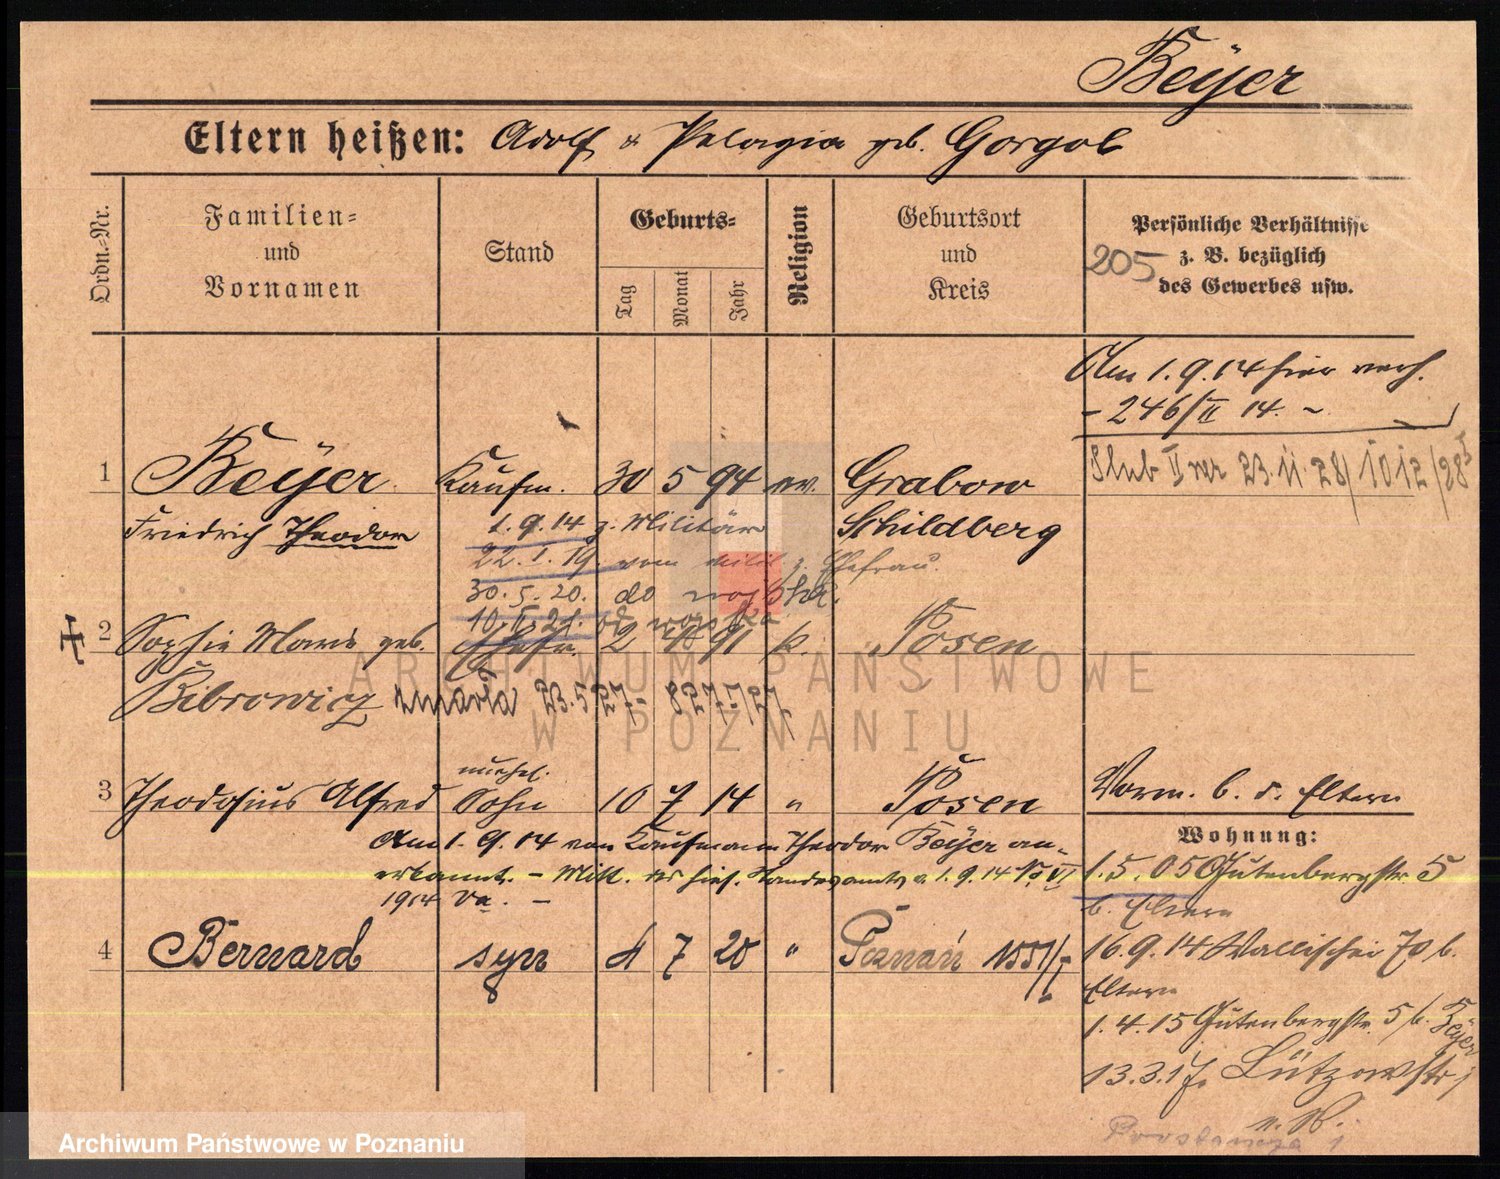 Beÿer
Eltern heißen: Adolf & Pelagia geb. Gorgol
Ordn.=Nr.
Familien=
und
Vornamen
Stand
Geburts=
Tag
Monat
Jahr
Religion
Geburtsort
und
Kreis
Persönliche Verhältnisse
z. B. bezüglich
des Gewerbes usw.
205
Am 1.9.14 hier verh.
- 246/II 14. -
1 Beÿer Kaufm. 30 5 94 ev. Grabow
Slub II 23.11.28/1012/28
Friedrich Theodor 1.9.14 z. Militär Schildberg
22.1.19. vom Milit z. Ehefrau.
30.5.20. do
10.II.21.
2 Sophie Marie geb. Ehefr. 2 91 k. Posen
Bibrowicz zmarła 23.5.27
ARCHIWUM PAŃSTWOWE
W POZNANIU
unehel.
3 Theodosius Alfred Sohn 10 7 14 " Posen
Vorm. b. d. Eltern
Am 1.9.14 vom Kaufmann Theodor Beÿer an-
erkannt. - Mitt. des hies. Standesamts v. 1.9.14 No VI
1914 Va. -
Wohnung:
1.5.05 Gutenbergstr. 5
b. Eltern
4 Bernard syn 4 7 20 " Poznań 1551/I
16.9.14 Wallischei 70 b.
Eltern
1.4.15 Gutenbergstr. 5 b. Beÿer
13.3.17. Lützowstr 1
Archiwum Państwowe w Poznaniu